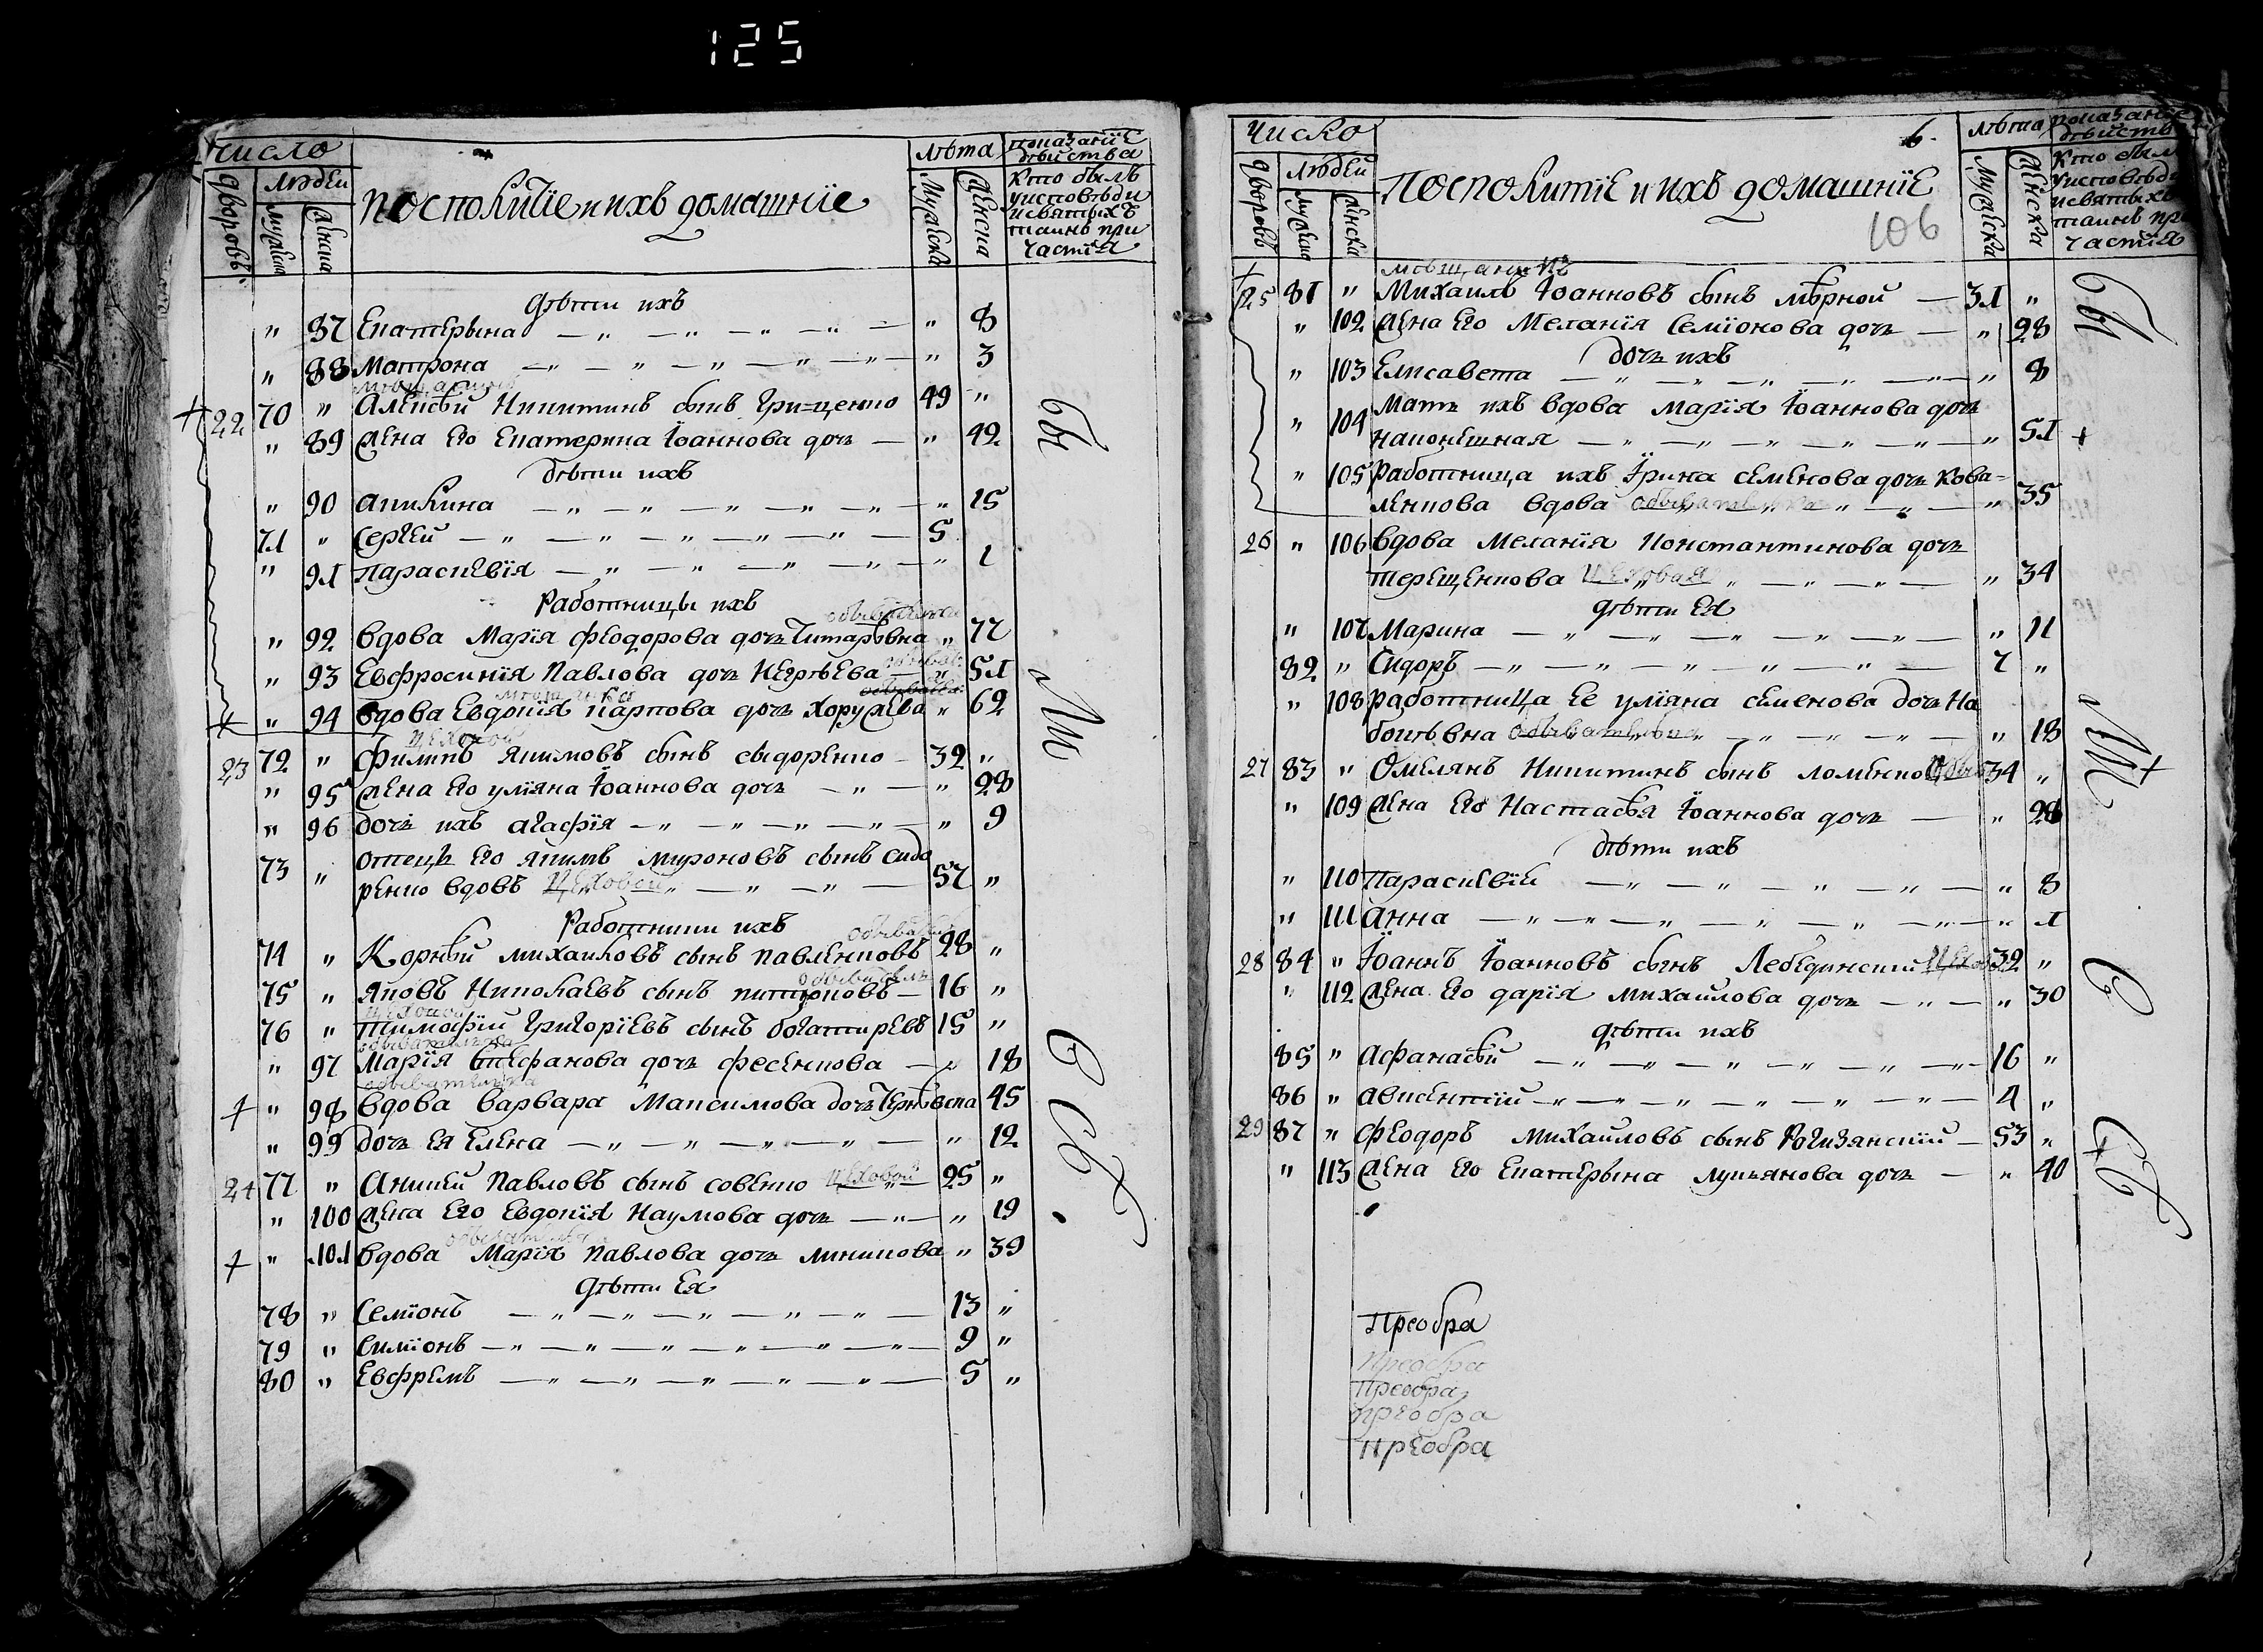 125
число
людей
дворовъ
мужеска
женска
посполитіе и ихъ домашніе
лѣта
мужеска
женска
показаніе
дѣйства
кто былъ
у исповѣди
и святыхъ
таинъ при
частія
дѣти ихъ
" 87 Екатерына — " — " — " — " — " 8
" 88 Матрона — " — " — " — " — " 3
мѣщанинъ
22 70 " Алеѯѣй Никитинъ сынъ Гри=ценко 49 "
" 89 жена его Екатерина Іоаннова дочь — " 42
дѣти ихъ
" 90 Акилина — " — " — " — " — " 15
71 " Сергей — " — " — " — " — " — 5
" 91 Параскевія — " — " — " — " — " 1
Работницы ихъ
" 92 вдова Марія Феодорова дочь " 77
" 93 Евфросинія Павлова дочь Негрѣева — " 51
" 94 вдова Евдокія Карпова дочь Хоружева " 62
цеховой
23 72 " Филипъ Якимовъ сынъ Сыдоренко — 32 "
" 95 жена его Уліяна Іоаннова дочь — " — " 28
" 96 дочь ихъ Агафія — " — " — " — " — " 9
73 " отецъ его Якимъ Мироновъ сынъ Сидо
ренко вдовъ цеховой — " — " — 57 "
Работники ихъ
74 " Корнѣй Михайловъ сынъ Павленковъ 28 "
обыватель
75 " Яковъ Николаевъ сынъ — 16 "
цеховой
76 " Тимофій Григоріевъ сынъ Богатиревъ 15 "
обывателка
" 97 Марія Стефанова дочь Фесенкова — " 18
обывателка
" 98 вдова Варвара Максимова дочь 45
" 99 дочь ея Елена — " — " — " — " — " 12
24 77 " Аникей Павловъ сынъ Совенко цеховой 25 "
" 100 жена его Евдокія Наумова дочь — " — " 19
" 101 вдова Марія Павлова дочь Линникова " 39
дѣти ея
78 " Семіонъ — " — " — " — " — " — 13 "
79 " Симіонъ — " — " — " — " — " — 9 "
80 " Евфремъ — " — " — " — " — " — 5 "
бы
ли
всѣ
число
людей
дворовъ
мужеска
женска
6.
посполитіе и ихъ домашніе
106
лѣта
мужеска
женска
показаніе
дѣйств
кто был
у исповѣд
и святыхъ
таинъ пр
частія
мѣщанинъ
25 81 " Михаилъ Іоанновъ сынъ Мѣрной — 31 "
" 102 жена его Меланія Семіонова дочь — " 28
дочь ихъ
" 103 Елисавета — " — " — " — " — " 8
" 104 Мать ихъ вдова Марія Іоаннова дочь
Наконешная — " — " — " — " — " 51 +
" 105 Работница ихъ Ірина Семенова дочь Кова=
ленкова вдова обывателка " — " — " 35
26 " 106 вдова Меланія Константинова дочь
Терещенкова цеховая " — " — " — " 34
дѣти ея
" 107 Марина — " — " — " — " — " — " 11
82 " Сидоръ — " — " — " — " — " — 7 "
" 108 работница ее Уліяна Семенова дочь На
" — " — " — " 18
27 83 " Омелянъ Никитинъ сынъ 34 "
" 109 жена его Настасѣя Іоаннова дочь — " 28
дѣти ихъ
" 110 Параскевіи — " — " — " — " — " 8
" 111 Анна — " — " — " — " — " — " 1
28 84 " Іоаннъ Іоанновъ сынъ Лебединскій 32 "
" 112 жена его Дарія Михайлова дочь — " — " 30
дѣти ихъ
85 " Афанасѣй — " — " — " — " — " — 16 "
86 " Авксентій — " — " — " — " — " — 4 "
29 87 " Феодоръ Михайловъ сынъ Рогизянскій — 53 "
" 113 жена его Екатерына Лукьянова дочь — " 40
бы
ли
в
сѣ
Преобра
Преобра
Преобра
преобра
Преобра